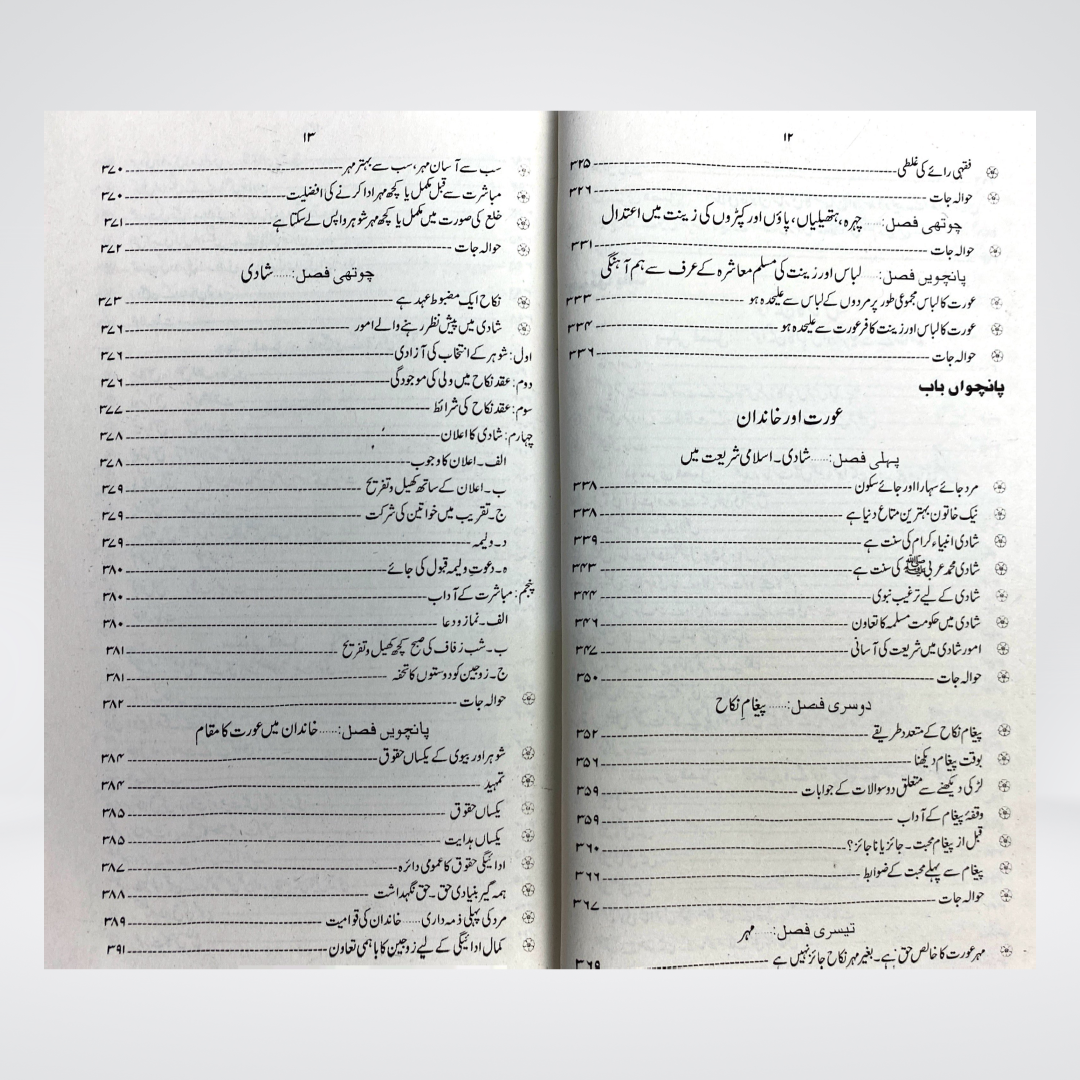 ۱۲
فقہی رائے کی غلطی ۳۲۵
حوالہ جات ۳۲۶
چوتھی فصل:...... چہرہ، ہتھیلیاں، پاؤں اور کپڑوں کی زینت میں اعتدال
حوالہ جات ۳۳۱
پانچویں فصل:...... لباس اور زینت کی مسلم معاشرہ کے عرف سے ہم آہنگی
عورت کا لباس مجموعی طور پر مردوں کے لباس سے علیحدہ ہو ۳۳۳
عورت کا لباس اور زینت کافر عورت سے علیحدہ ہو ۳۳۴
حوالہ جات ۳۳۶
پانچواں باب
عورت اور خاندان
پہلی فصل:...... شادی۔ اسلامی شریعت میں
مرد جائے سہارا اور جائے سکون ۳۳۸
نیک خاتون بہترین متاع دنیا ہے ۳۳۸
شادی انبیاء کرام کی سنت ہے ۳۳۹
شادی محمد عربی ﷺ کی سنت ہے ۳۴۳
شادی کے لیے ترغیب نبوی ۳۴۴
شادی میں حکومت مسلمہ کا تعاون ۳۴۶
امور شادی میں شریعت کی آسانی ۳۴۷
حوالہ جات ۳۵۰
دوسری فصل:...... پیغامِ نکاح
پیغام نکاح کے متعدد طریقے ۳۵۲
بوقت پیغام دیکھنا ۳۵۶
لڑکی دیکھنے سے متعلق دو سوالات کے جوابات ۳۵۹
وقفۂ پیغام کے آداب ۳۵۹
قبل از پیغام محبت۔ جائز یا ناجائز؟ ۳۶۰
پیغام سے پہلے محبت کے ضوابط ۳۶۶
حوالہ جات ۳۶۷
تیسری فصل:...... مہر
مہر عورت کا خالص حق ہے۔ بغیر مہر نکاح جائز نہیں ہے ۳۶۹
۱۳
سب سے آسان مہر، سب سے بہتر مہر ۳۷۰
مباشرت سے قبل مکمل یا کچھ مہر ادا کرنے کی افضلیت ۳۷۰
خلع کی صورت میں مکمل یا کچھ مہر شوہر واپس لے سکتا ہے ۳۷۱
حوالہ جات ۳۷۲
چوتھی فصل:...... شادی
نکاح ایک مضبوط عہد ہے ۳۷۳
شادی میں پیش نظر رہنے والے امور ۳۷۶
اول: شوہر کے انتخاب کی آزادی ۳۷۶
دوم: عقد نکاح میں ولی کی موجودگی ۳۷۶
سوم: عقد نکاح کی شرائط ۳۷۷
چہارم: شادی کا اعلان ۳۷۸
الف۔ اعلان کا وجوب ۳۷۸
ب۔ اعلان کے ساتھ کھیل و تفریح ۳۷۹
ج۔ تقریب میں خواتین کی شرکت ۳۷۹
د۔ ولیمہ ۳۷۹
ہ۔ دعوتِ ولیمہ قبول کی جائے ۳۸۰
پنجم: مباشرت کے آداب ۳۸۰
الف۔ نماز و دعا ۳۸۰
ب۔ شب زفاف کی صبح کچھ کھیل و تفریح ۳۸۱
ج۔ زوجین کو دوستوں کا تحفہ ۳۸۱
حوالہ جات ۳۸۲
پانچویں فصل:...... خاندان میں عورت کا مقام
شوہر اور بیوی کے یکساں حقوق ۳۸۴
تمہید ۳۸۴
یکساں حقوق ۳۸۵
یکساں ہدایت ۳۸۵
ادائیگی حقوق کا عمومی دائرہ ۳۸۷
ہمہ گیر بنیادی حق۔ حق نگہداشت ۳۸۸
مرد کی پہلی ذمہ داری...... خاندان کی قوامیت ۳۸۹
کمال ادائیگی کے لیے زوجین کا باہمی تعاون ۳۹۱